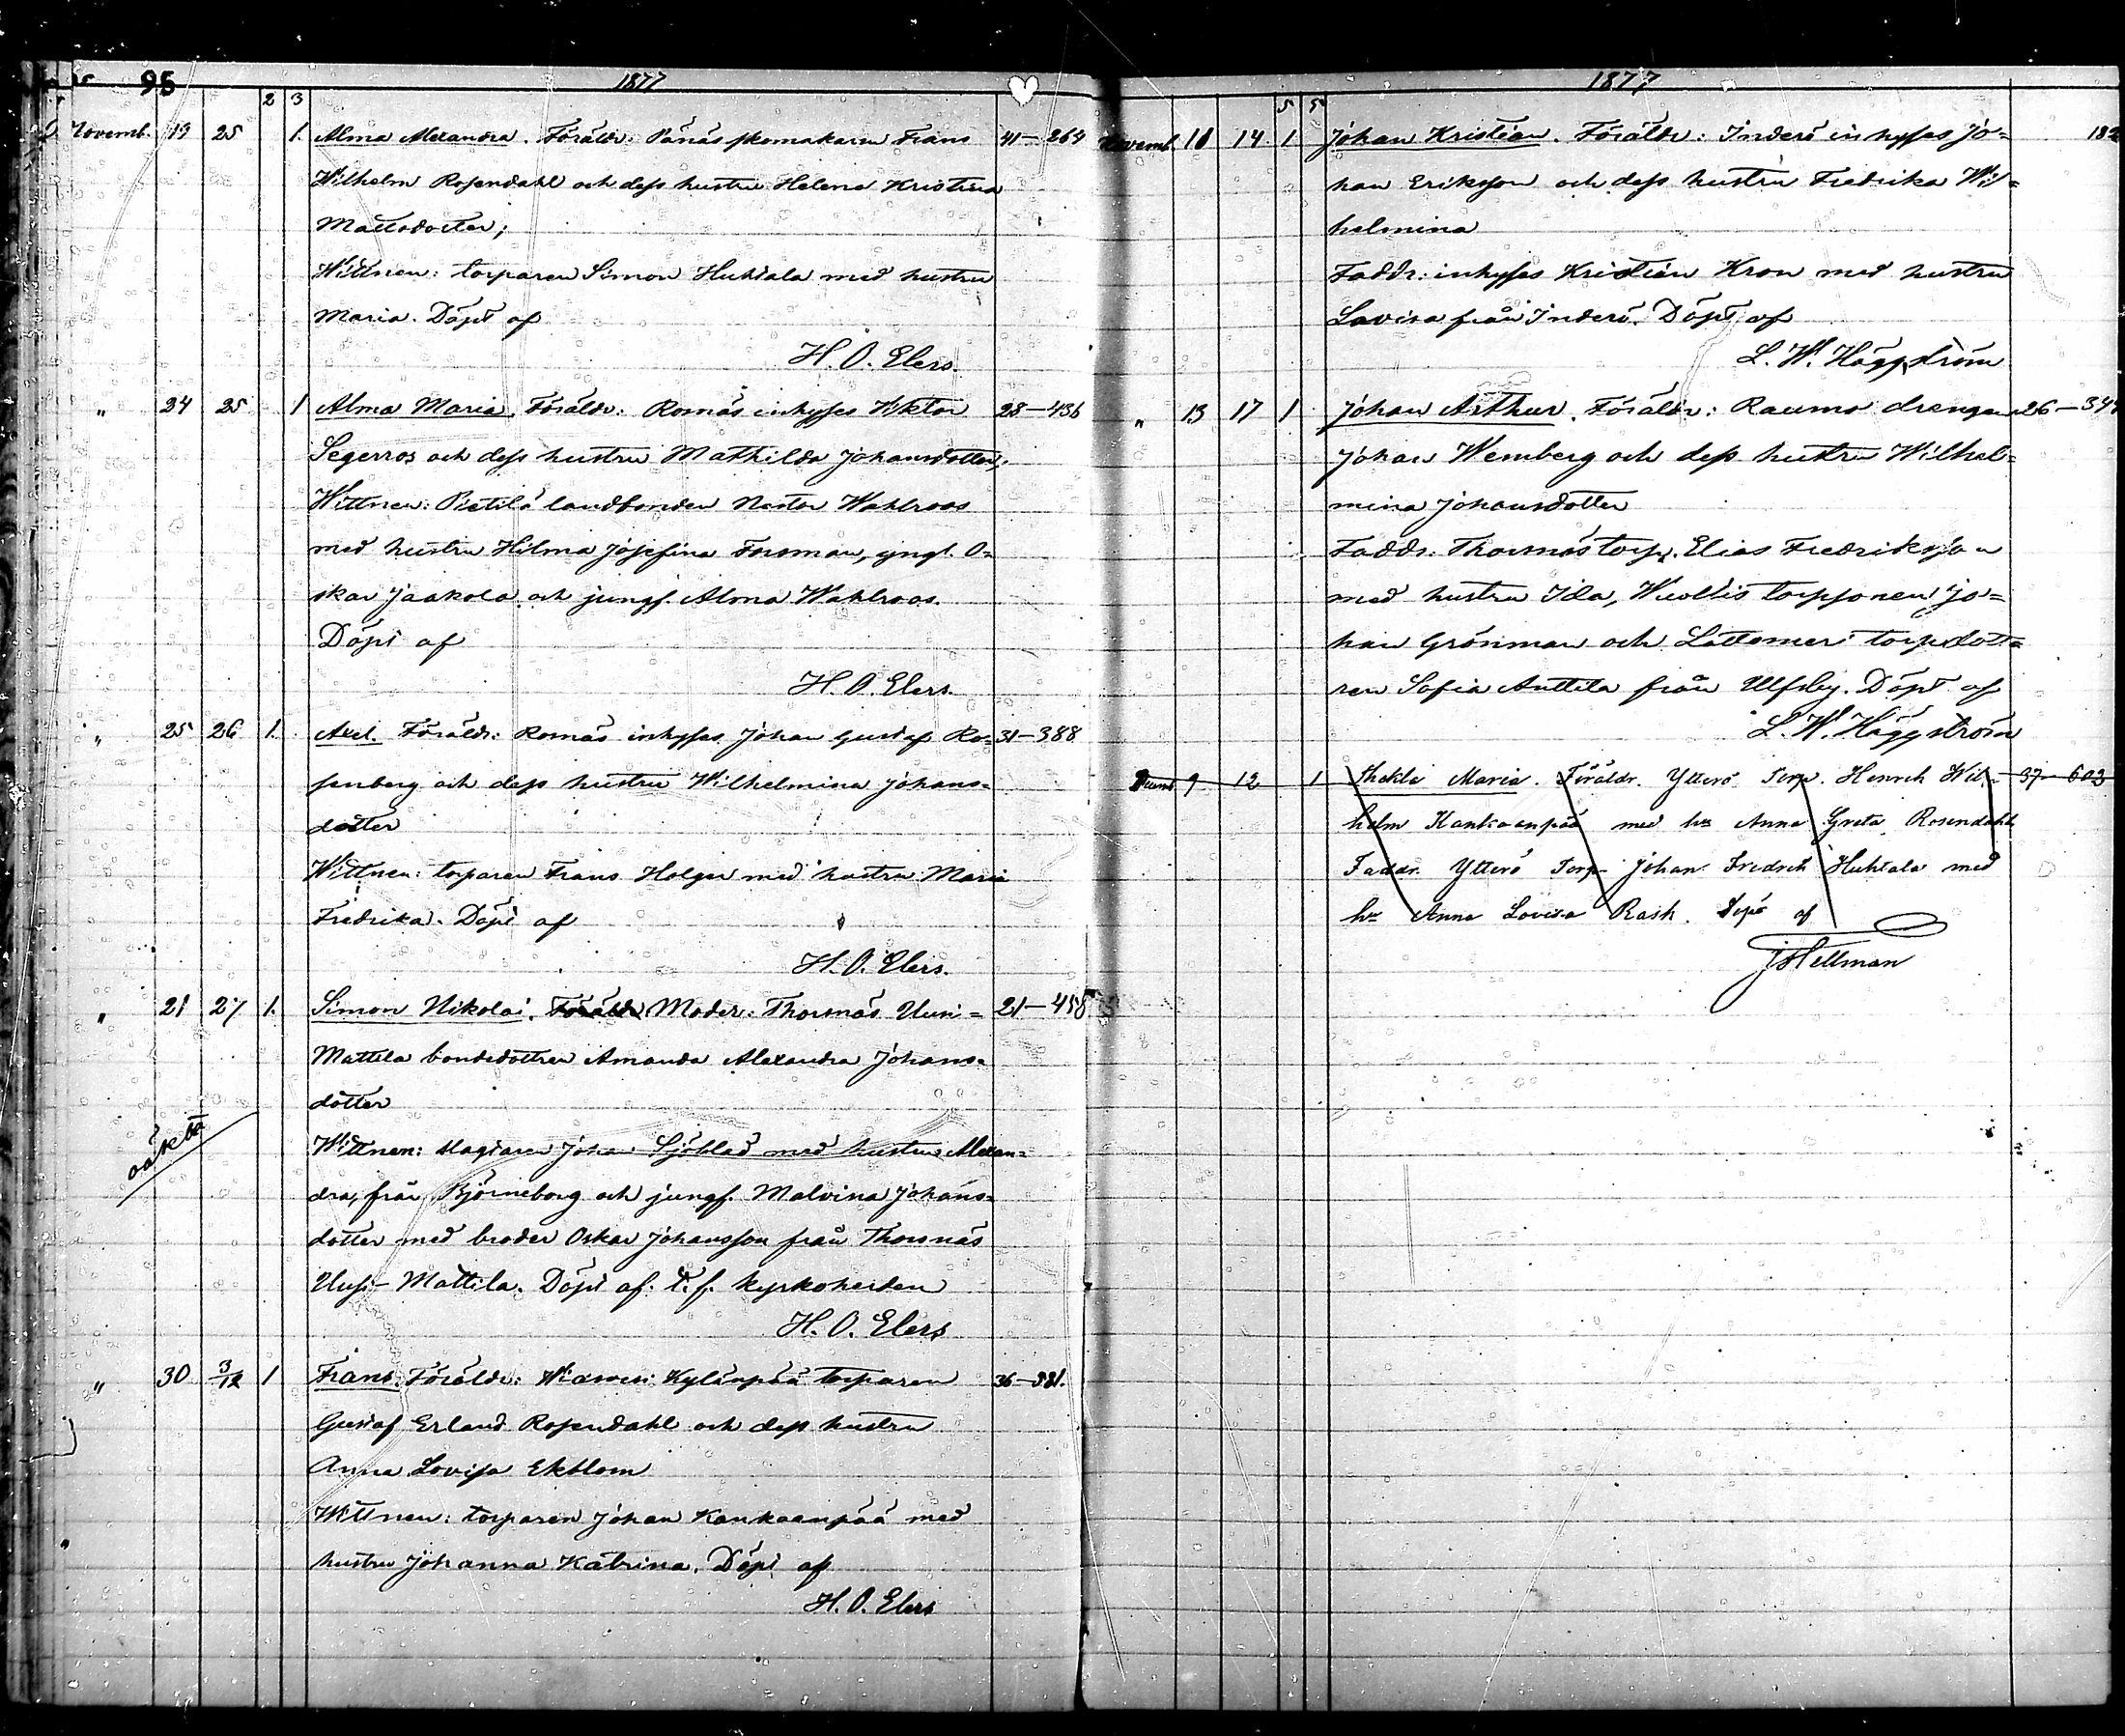 95
1877
2 3
Novemb. 19 25 1. Alma Alexandra. Föräldr: Pänäs skomakaren Frans 41-264
Wilhelm Rosendahl och dess hustru Helena Kristina
Mattsdotter;
Wittnen: torparen Simon Huhtala med hustru
Maria. Döpt af
H. O. Elers.
" 24 25 1 Alma Maria. Föräldr: Romäs inhyses Viktor 28-436
Segerros och dess hustru Mathilda Johansdotter.
Wittnen: Pietilä landbonden Nestor Wahlroos
med hustru Hilma Josefina Forsman, yngl. O=
skar Jaakola och jungf. Alma Wahlroos.
Döpt af
H. O. Elers.
" 25 26 1. Axel. Föräldr: Romäs inhyses Johan Gustaf Ro= 31-388
senberg och dess hustru Wilhelmina Johans=
dotter
Wittnen: torparen Frans Holger med hustru Maria
Fredrika. Döpt af
H. O. Elers.
" 21 27 1. Simon Nikolai. Föräldr Moder: Thorsnäs Uusi= 21-458
Mattila bondedottren Amanda Alexandra Johans=
dotter
oäkta
Wittnen: Johan Sjöblad med hustru Alexan=
dra, från Björneborg och jungf. Malvina Johans=
dotter med broder Oskar Johansson från Thorsnäs
Uusi-Mattila. Döpt af t. f. kyrkoherden
H. O. Elers
" 30 3/12 1 Frans. Föräldr: Kylänpää torparen 36-381.
Gustaf Erland Rosendahl och dess hustru
Anna Lovisa Ekblom
Wittnen: torparen Johan Kankaanpää med
hustru Johanna Katrina. Döpt af
H. O. Elers
1877
5 5
Novemb. 10 14 1 Johan Kristian. Föräldr: Inderö inhyses Jo= 182
han Eriksson och dess hustru Fredrika Wil=
helmina
Faddr: inhyses Kristian Kron med hustru
Lovisa från Inderö. Döpt af
L. W. Häggström
" 13 17 1 Johan Arthur. Föräldr: Raumo drengen 26-344
Johan Wemberg och dess hustru Wilhel=
mina Johansdotter
Faddr: Thorsnäs torp. Elias Fredriksson
med hustru Ida, torpsonen Jo=
han Grönman och Lattomeri torpdott=
ren Sofia Anttila från Ulfsby. Döpt af
L. W. Häggström
Decemb 9 12 1 Thekla Maria. Föräldr. Ytterö Torp. Henrik Wil= 37-603
helm Kankaanpää med h: Anna Greta Rosendahl
Faddr. Ytterö Torp Johan Fredrik Huhtala med
h: Anna Lovisa Rask. Döpt af
J Hellman